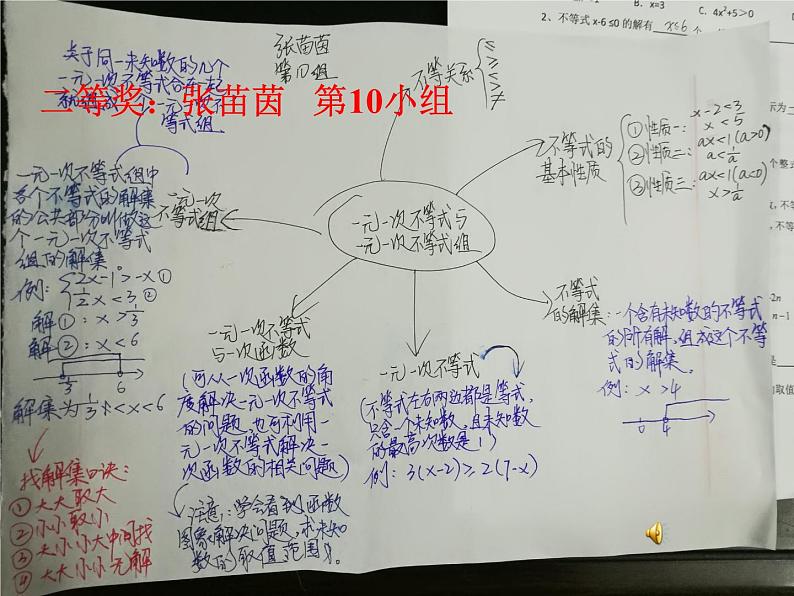 张苗茵
第10组
二等奖：张苗茵 第10小组
关于同一未知数的几个
一元一次不等式合在一起
就组成
一元一次不
等式组
不等关系
≤
≥
<
>
≠
不等式的
基本性质
①性质一：
x-2<3
x<5
②性质二：
ax<1(a>0)
a<1/a
③性质三：
ax<1(a<0)
x>1/a
一元一次不等式与
一元一次不等式组
一元一次
不等式组
一元一次不等式组中
各个不等式的解集
的公共部分叫做这
个一元一次不等式
组的解集
例：{2x-1>-x①
1/2x<3②
解①：x>1/3
解②：x<6
1/3 6
解集为1/3<x<6
找解集口诀：
①大大取大
②小小取小
③大小小大中间找
④大大小小无解
一元一次不等式
与一次函数
(可从一次函数的角
度解决一元一次不等式
的问题，也可利用一
元一次不等式解决一
次函数的相关问题)
注意：学会看到函数
图象解决问题，求未知
数的取值范围）。
一元一次不等式
(不等式左右两边都是等式，
只含一个未知数，且未知数
的最高次数是1)
例：3(x-2)≥2(7-x)
不等式
的解集：一个含有未知数的不等式
的所有解，组成这个不等
式的解集。
例：x>4
0 4
B. x=3 C. 4x²+5＞0
2、不等式 x-6≤0 的解有 x≤6 个
示为
个整式
不等
-2n
n-1
取值